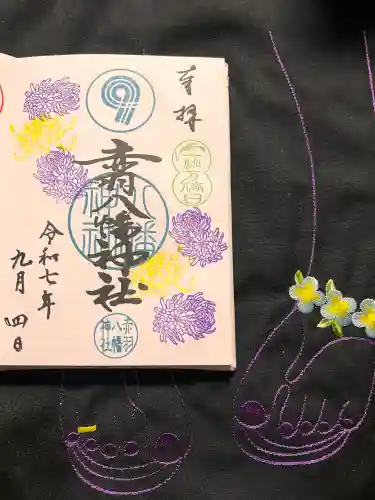 奉拝
赤羽八幡神社
令和七年
九月四日
赤羽
八幡
神社